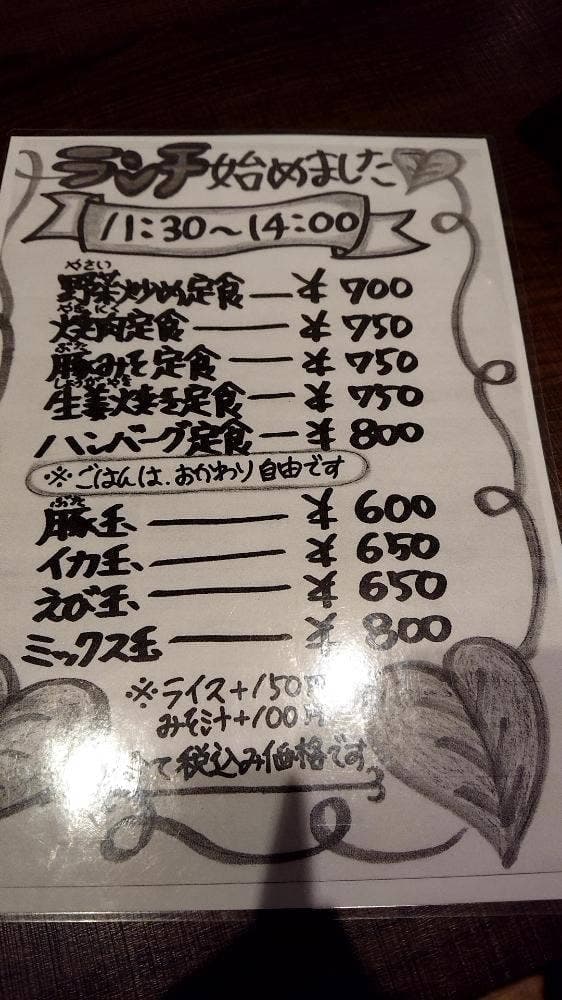 ランチ始めました
11:30～14:00
やさい
野菜炒め定食 — ¥ 700
やきにく
焼肉定食 — ¥ 750
ぶた
豚みそ定食 — ¥ 750
しょうがやき
生姜焼き定食 — ¥ 750
ハンバーグ定食 — ¥ 800
※ごはんは、おかわり自由です
ぶた
豚玉 — ¥ 600
イカ玉 — ¥ 650
えび玉 — ¥ 650
ミックス玉 — ¥ 800
※ライス+150円
みそ汁+100円
て税込み価格です